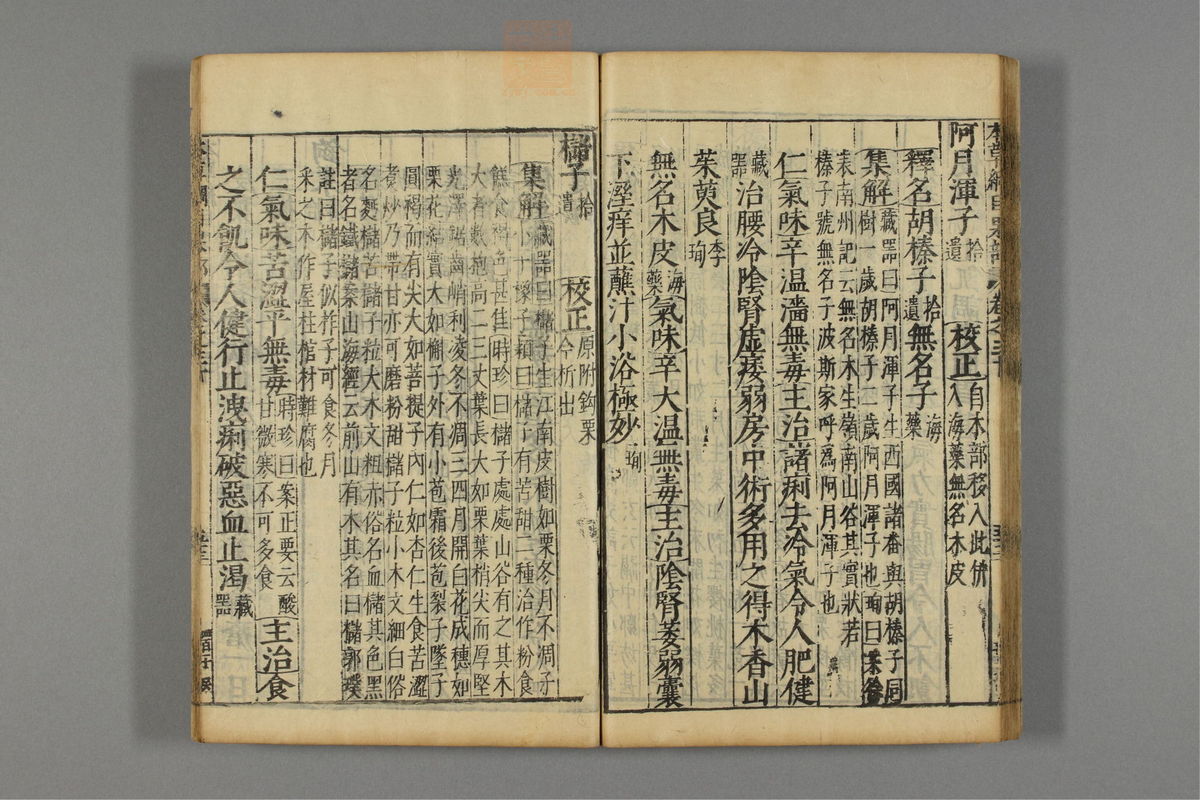 阿月渾子拾遺 校正自本部移入此併入海藥無名木皮
釋名胡榛子拾遺無名子海藥
集解藏器曰阿月渾子生西國諸番與胡榛子同樹一歲胡榛子二歲阿月渾子也珣曰按徐
表南州記云無名木生嶺南山谷其實狀若榛子號無名子波斯家呼為阿月渾子也
仁氣味辛温濇無毒主治諸痢去冷氣令人肥健
藏器治腰冷陰腎虛痿弱房中術多用之得木香山
茱萸良李珣
無名木皮海藥氣味辛大温無毒主治陰腎萎弱囊
下溼痒並蘸汁小浴極妙珣
櫧子拾遺 校正原附鈎栗今析出
集解藏器曰櫧子生江南皮樹如栗冬月不凋子小于橡子穎曰櫧子有苦甜二種治作粉食
餻食褐色甚佳時珍曰櫧子處處山谷有之其木大者數抱高二三丈葉長大如栗葉稍尖而厚堅
光澤鋸齒峭利凌冬不凋三四月開白花成穗如栗花結實大如槲子外有小苞霜後苞裂子墜子
圓褐而有尖大如菩提子內仁如杏仁生食苦澀煮炒乃帶甘亦可磨粉甜櫧子粒小木文細白俗
名麫櫧苦櫧子粒大木文粗赤俗名血櫧其色黑者名鐵櫧案山海經云前山有木其名曰櫧郭璞
註曰櫧子似柞子可食冬月采之木作屋柱棺材難腐也
仁氣味苦澀平無毒時珍曰案正要云酸甘微寒不可多食主治食
之不飢令人健行止洩痢破惡血止渴藏器